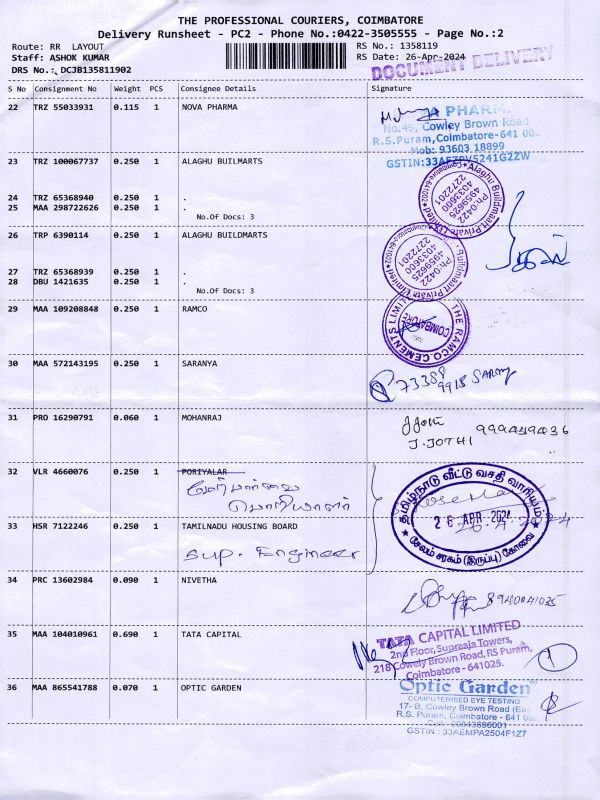 THE PROFESSIONAL COURIERS, COIMBATORE
Delivery Runsheet - PC2 - Phone No.:0422-3505555 - Page No.:2
Route: RR LAYOUT
RS No.: 1358119
Staff: ASHOK KUMAR
RS Date: 26-Apr-2024
DRS No.: DCJB135811902
DOCUMENT DELIVERY
S No Consignment No Weight PCS Consignee Details Signature
22 TRZ 55033931 0.115 1 NOVA PHARMA
A PHARMA
No.49, Cowley Brown Road
R.S.Puram, Coimbatore-641 00
Mob: 93603 18899
23 TRZ 100067737 0.250 1 ALAGHU BUILMARTS
24 TRZ 65368940 0.250 1 .
25 MAA 298722626 0.250 1 .
No.Of Docs: 3
Alaghu Buildmaart Private Limited
Ph:0422
4959625
4033600
2272201
26 TRP 6390114 0.250 1 ALAGHU BUILDMARTS
27 TRZ 65368939 0.250 1 .
28 DBU 1421635 0.250 1 .
No.Of Docs: 3
Buildmaart Private Limited
Ph:0422
4959625
4033600
2272201
29 MAA 109208848 0.250 1 RAMCO
THE RAMCO CEMENTS LIMITED
COIMBATORE
30 MAA 572143195 0.250 1 SARANYA
73388
9918 Sarany
31 PRO 16290791 0.060 1 MOHANRAJ
J. JOTHI
32 VLR 4660076 0.250 1 PORIYALAR
மேற்பார்வை
பொறியாளர்
தமிழ்நாடு வீட்டு வசதி வாரியம்
26 APR 2024
26.4.2024
33 HSR 7122246 0.250 1 TAMILNADU HOUSING BOARD
Sup. Engineer
34 PRC 13602984 0.090 1 NIVETHA
8940041035
35 MAA 104010961 0.690 1 TATA CAPITAL
TATA CAPITAL LIMITED
2nd Floor, Supraaja Towers,
218 Cowely Brown Road, RS Puram,
Coimbatore - 641025.
1
36 MAA 865541788 0.070 1 OPTIC GARDEN
Optic Garden
COMPUTERISED EYE TESTING
17- B, Cowley Brown Road (Eas
R.S. Puram, Coimbatore - 641 00
GSTIN : 33AEMPA2504F1Z7